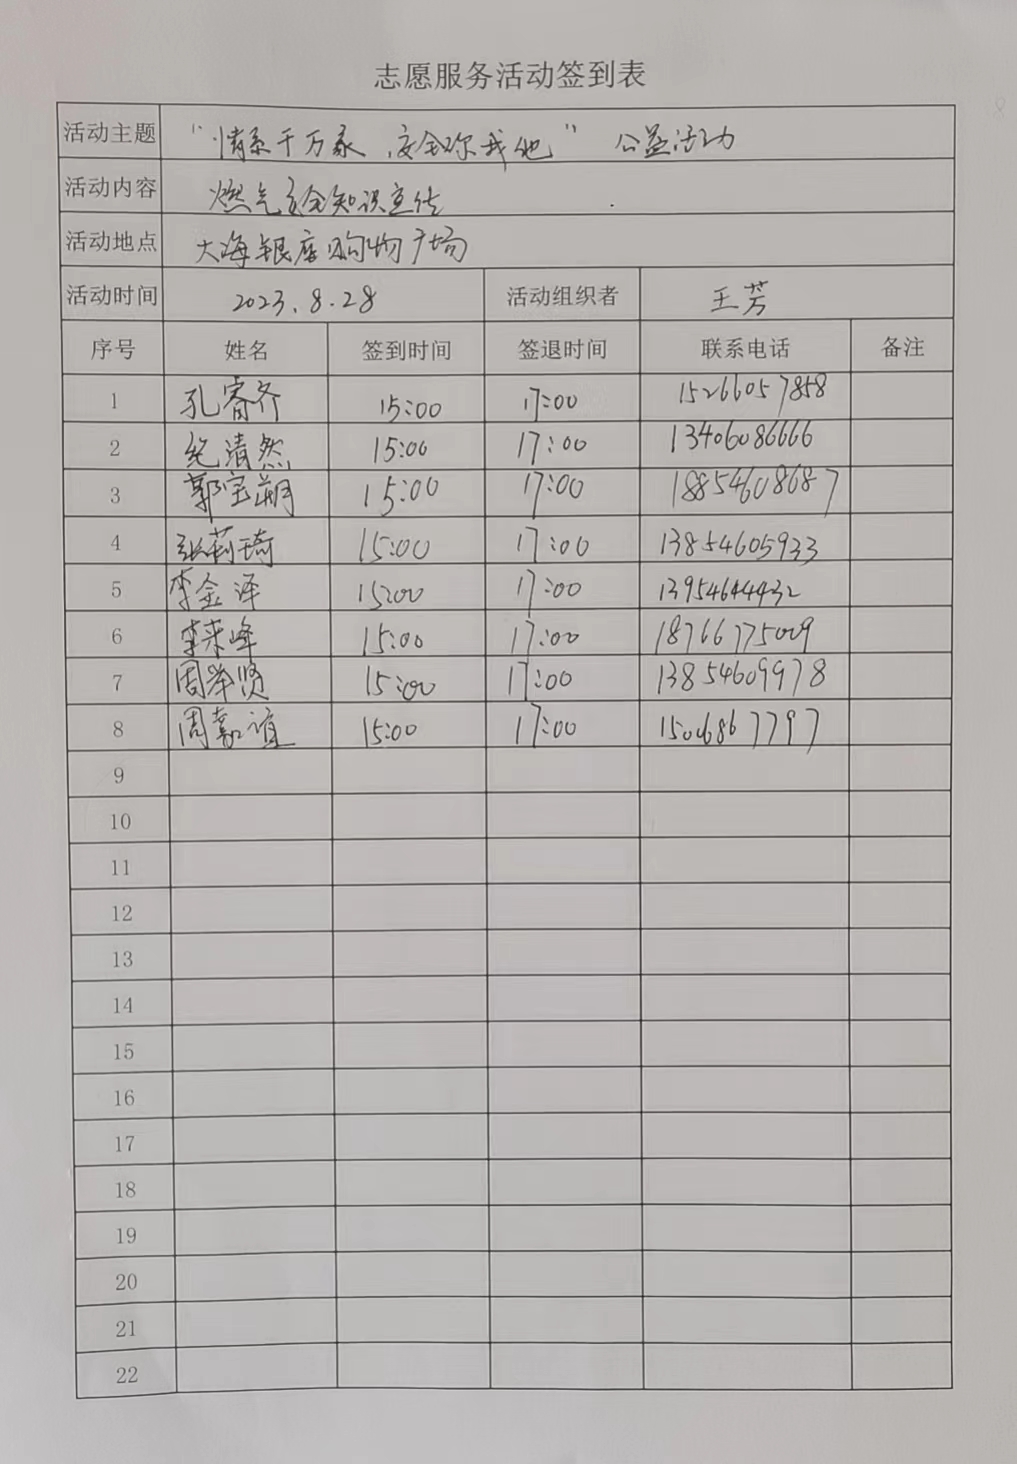 志愿服务活动签到表
活动主题 “情系千万家、安全你我他” 公益活动
活动内容 燃气安全知识宣传
活动地点 大海银座购物广场
活动时间 2023.8.28 活动组织者 王芳
序号 姓名 签到时间 签退时间 联系电话 备注
1 孔睿齐 15:00 17:00 15266057858
2 纪清然 15:00 17:00 13406086666
3 郭宝朔 15:00 17:00 18854608687
4 张莉琦 15:00 17:00 13854605933
5 李金泽 15:00 17:00 13954644432
6 李来峰 15:00 17:00 18766775009
7 周举贤 15:00 17:00 13854609978
8 周嘉谊 15:00 17:00 15006867797
9
10
11
12
13
14
15
16
17
18
19
20
21
22